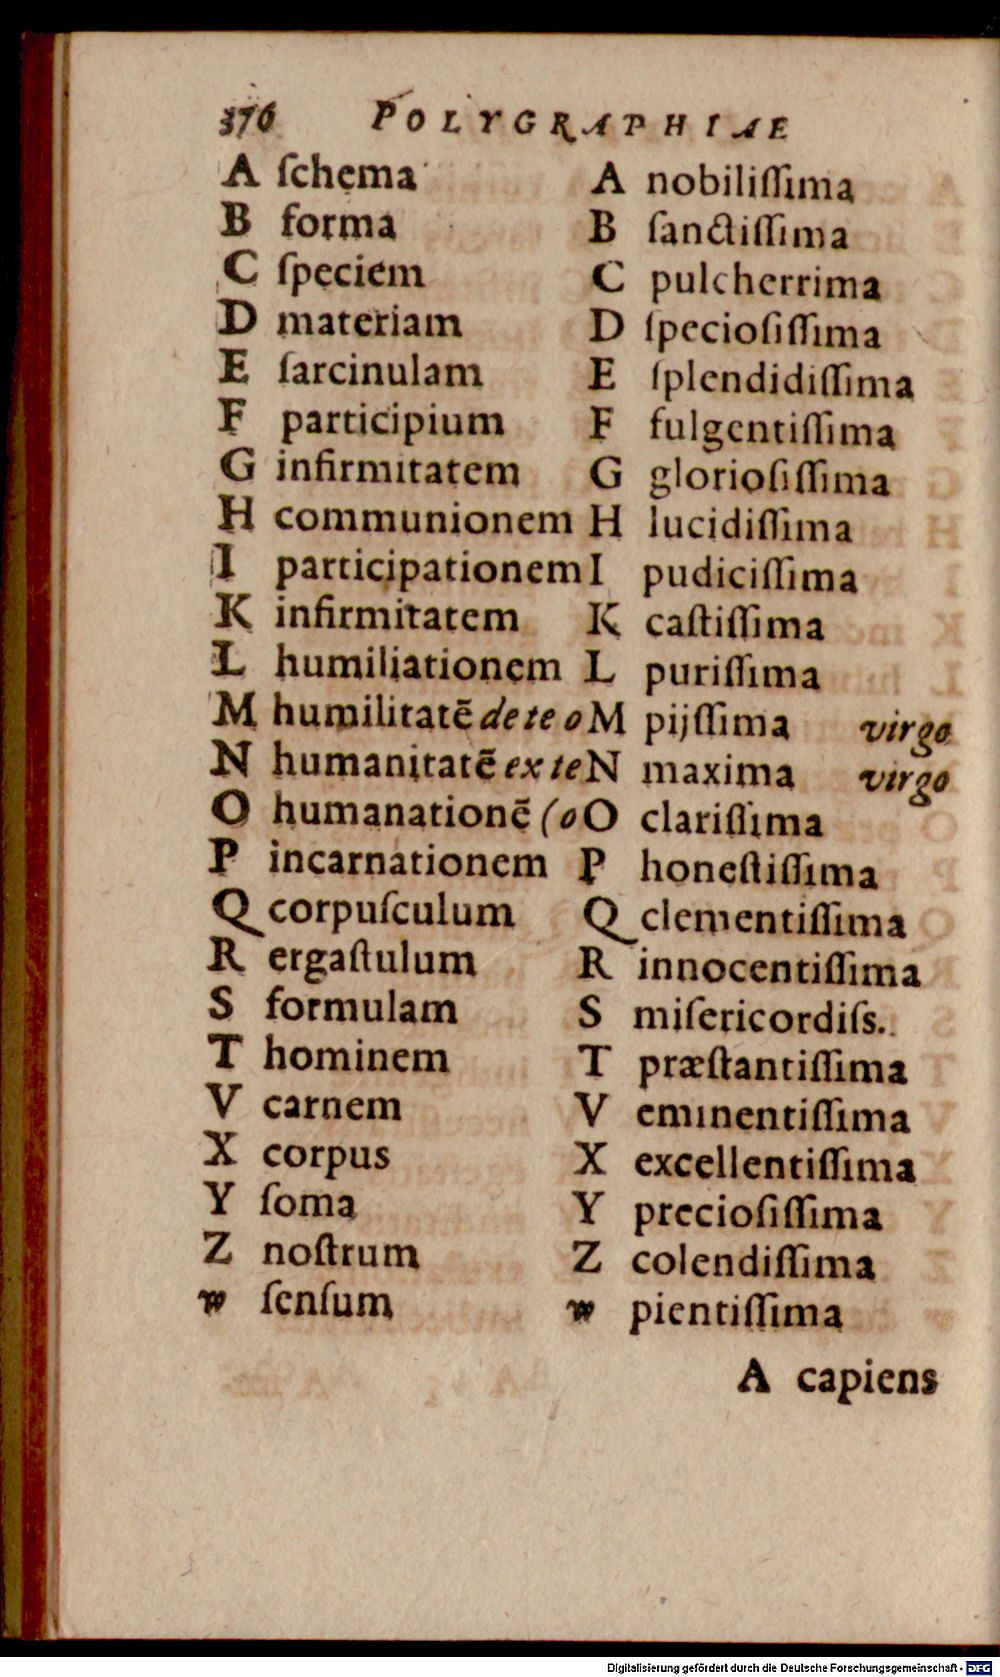 376 POLYGRAPHIAE
A ſchema
B forma
C ſpeciem
D materiam
E ſarcinulam
F participium
G infirmitatem
H communionem
I participationem
K infirmitatem
L humiliationem
M humilitatē de te o
N humanitatē ex te
O humanationē (o
P incarnationem
Q corpuſculum
R ergaſtulum
S formulam
T hominem
V carnem
X corpus
Y ſoma
Z noſtrum
w ſenſum
A nobiliſſima
B ſanctiſſima
C pulcherrima
D ſpecioſiſſima
E ſplendidiſſima
F fulgentiſſima
G glorioſiſſima
H lucidiſſima
I pudiciſſima
K caſtiſſima
L puriſſima
M pijſſima virgo
N maxima virgo
O clariſſima
P honeſtiſſima
Q clementiſſima
R innocentiſſima
S miſericordiſs.
T præſtantiſſima
V eminentiſſima
X excellentiſſima
Y precioſiſſima
Z colendiſſima
w pientiſſima
A capiens
Digitalisierung gefördert durch die Deutsche Forschungsgemeinschaft - DFG